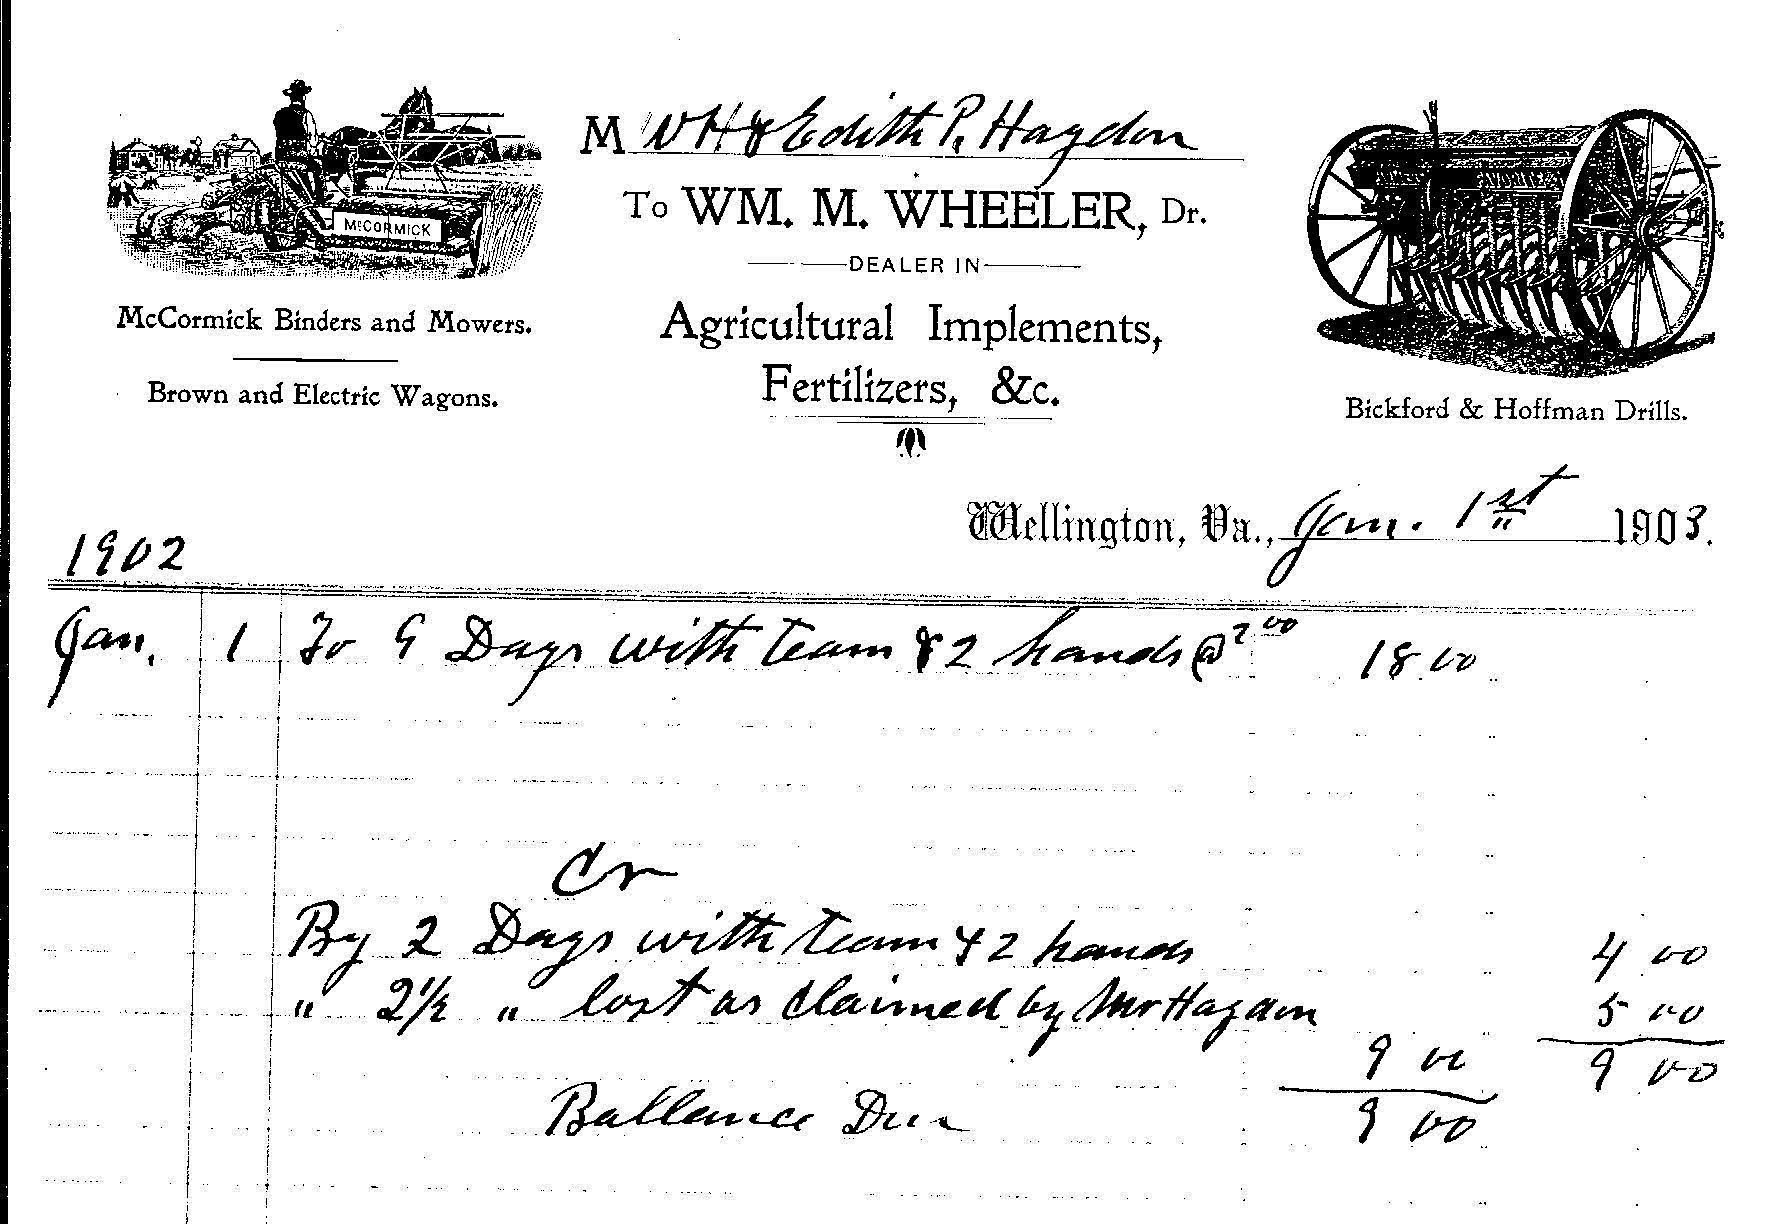 M W H & Edith P. Haydon
To WM. M. WHEELER, Dr.
DEALER IN
Agricultural Implements,
Fertilizers, &c.
McCORMICK
McCormick Binders and Mowers.
Brown and Electric Wagons.
Bickford & Hoffman Drills.
Wellington, Va., Jan. 1st 1903.
1902
Jan. 1 To 9 Days with team & 2 hands @ 2.00 18 00
Cr
By 2 Days with team & 2 hands 4 00
" 2 1/2 " lost as claimed by Mr Haydon 5 00
9 00 9 00
Ballance Due 9 00